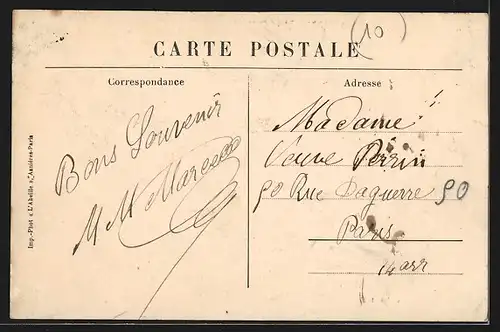 (10)
CARTE POSTALE
Correspondance
Adresse
Bons Souvenir
M M
Madame
Veuve Perrin
90 Rue Daguerre 90
Paris
14 arr
Imp.-Phot « L'Abeille », Asnières-Paris